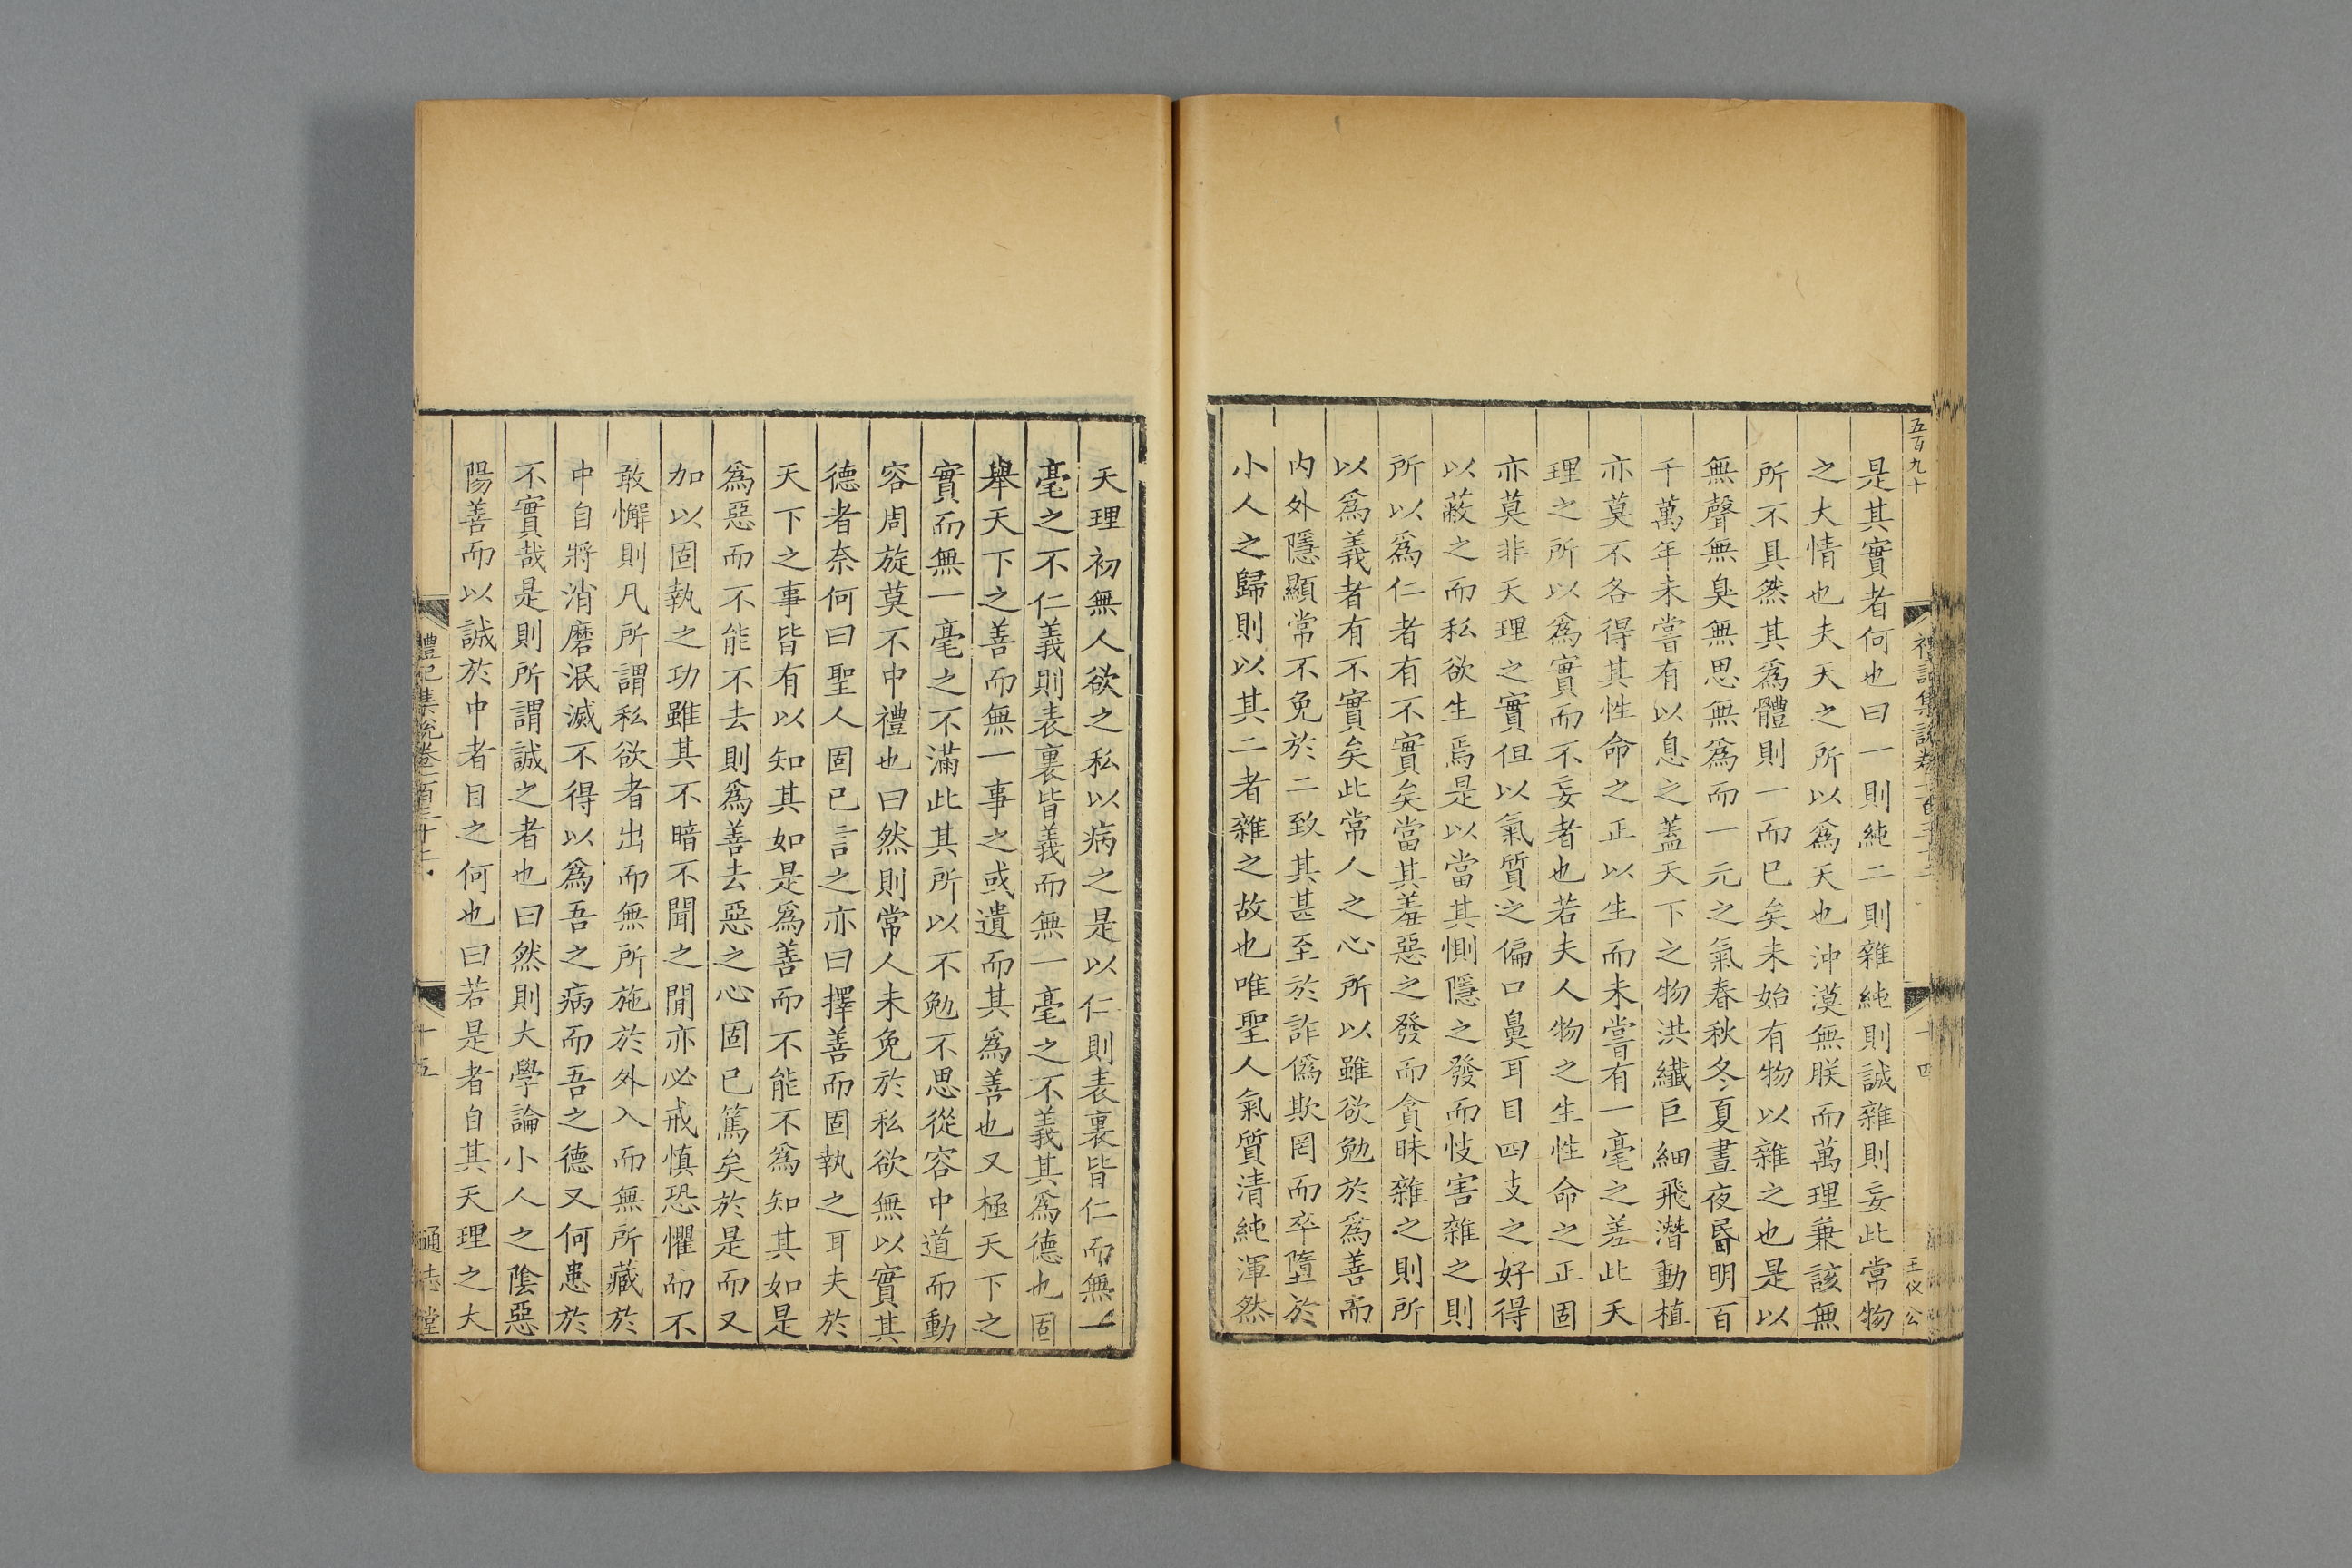 五百九十
十四
王仪公
是其實者何也曰一則純二則雜純則誠雜則妄此常物
之大情也夫天之所以爲天也沖漠無朕而萬理兼該無
所不具然其爲體則一而已矣未始有物以雜之也是以
無聲無臭無思無爲而一元之氣春秋冬夏晝夜昬明百
千萬年未嘗有以息之蓋天下之物洪纖巨細飛潛動植
亦莫不各得其性命之正以生而未嘗有一毫之差此天
理之所以爲實而不妄者也若夫人物之生性命之正固
亦莫非天理之實但以氣質之偏口鼻耳目四支之好得
以蔽之而私欲生焉是以當其惻隱之發而忮害雜之則
所以爲仁者有不實矣當其羞惡之發而貪昧雜之則所
以爲義者有不實矣此常人之心所以雖欲勉於爲善而
内外隱顯常不免於二致其甚至於詐僞欺罔而卒墮於
小人之歸則以其二者雜之故也唯聖人氣質清純渾然
天理初無人欲之私以病之是以仁則表裏皆仁而無一
毫之不仁義則表裏皆義而無一毫之不義其爲德也固
舉天下之善而無一事之或遺而其爲善也又極天下之
實而無一毫之不滿此其所以不勉不思從容中道而動
容周旋莫不中禮也曰然則常人未免於私欲無以實其
德者奈何曰聖人固已言之亦曰擇善而固執之耳夫於
天下之事皆有以知其如是爲善而不能不爲知其如是
爲惡而不能不去則爲善去惡之心固已篤矣於是而又
加以固執之功雖其不暗不聞之閒亦必戒慎恐懼而不
敢懈則凡所謂私欲者出而無所施於外入而無所藏於
中自將消磨泯滅不得以爲吾之病而吾之德又何患於
不實哉是則所謂誠之者也曰然則大學論小人之陰惡
陽善而以誠於中者目之何也曰若是者自其天理之大
禮記集說卷一百三十二
十五
通志堂